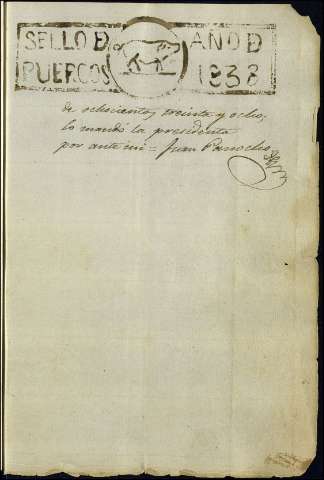 SELLO D AÑO D
PUERCOS 1838
de ochocientos treinta y ocho,
lo mandó la presidenta
por ante mi = Juan Panocho